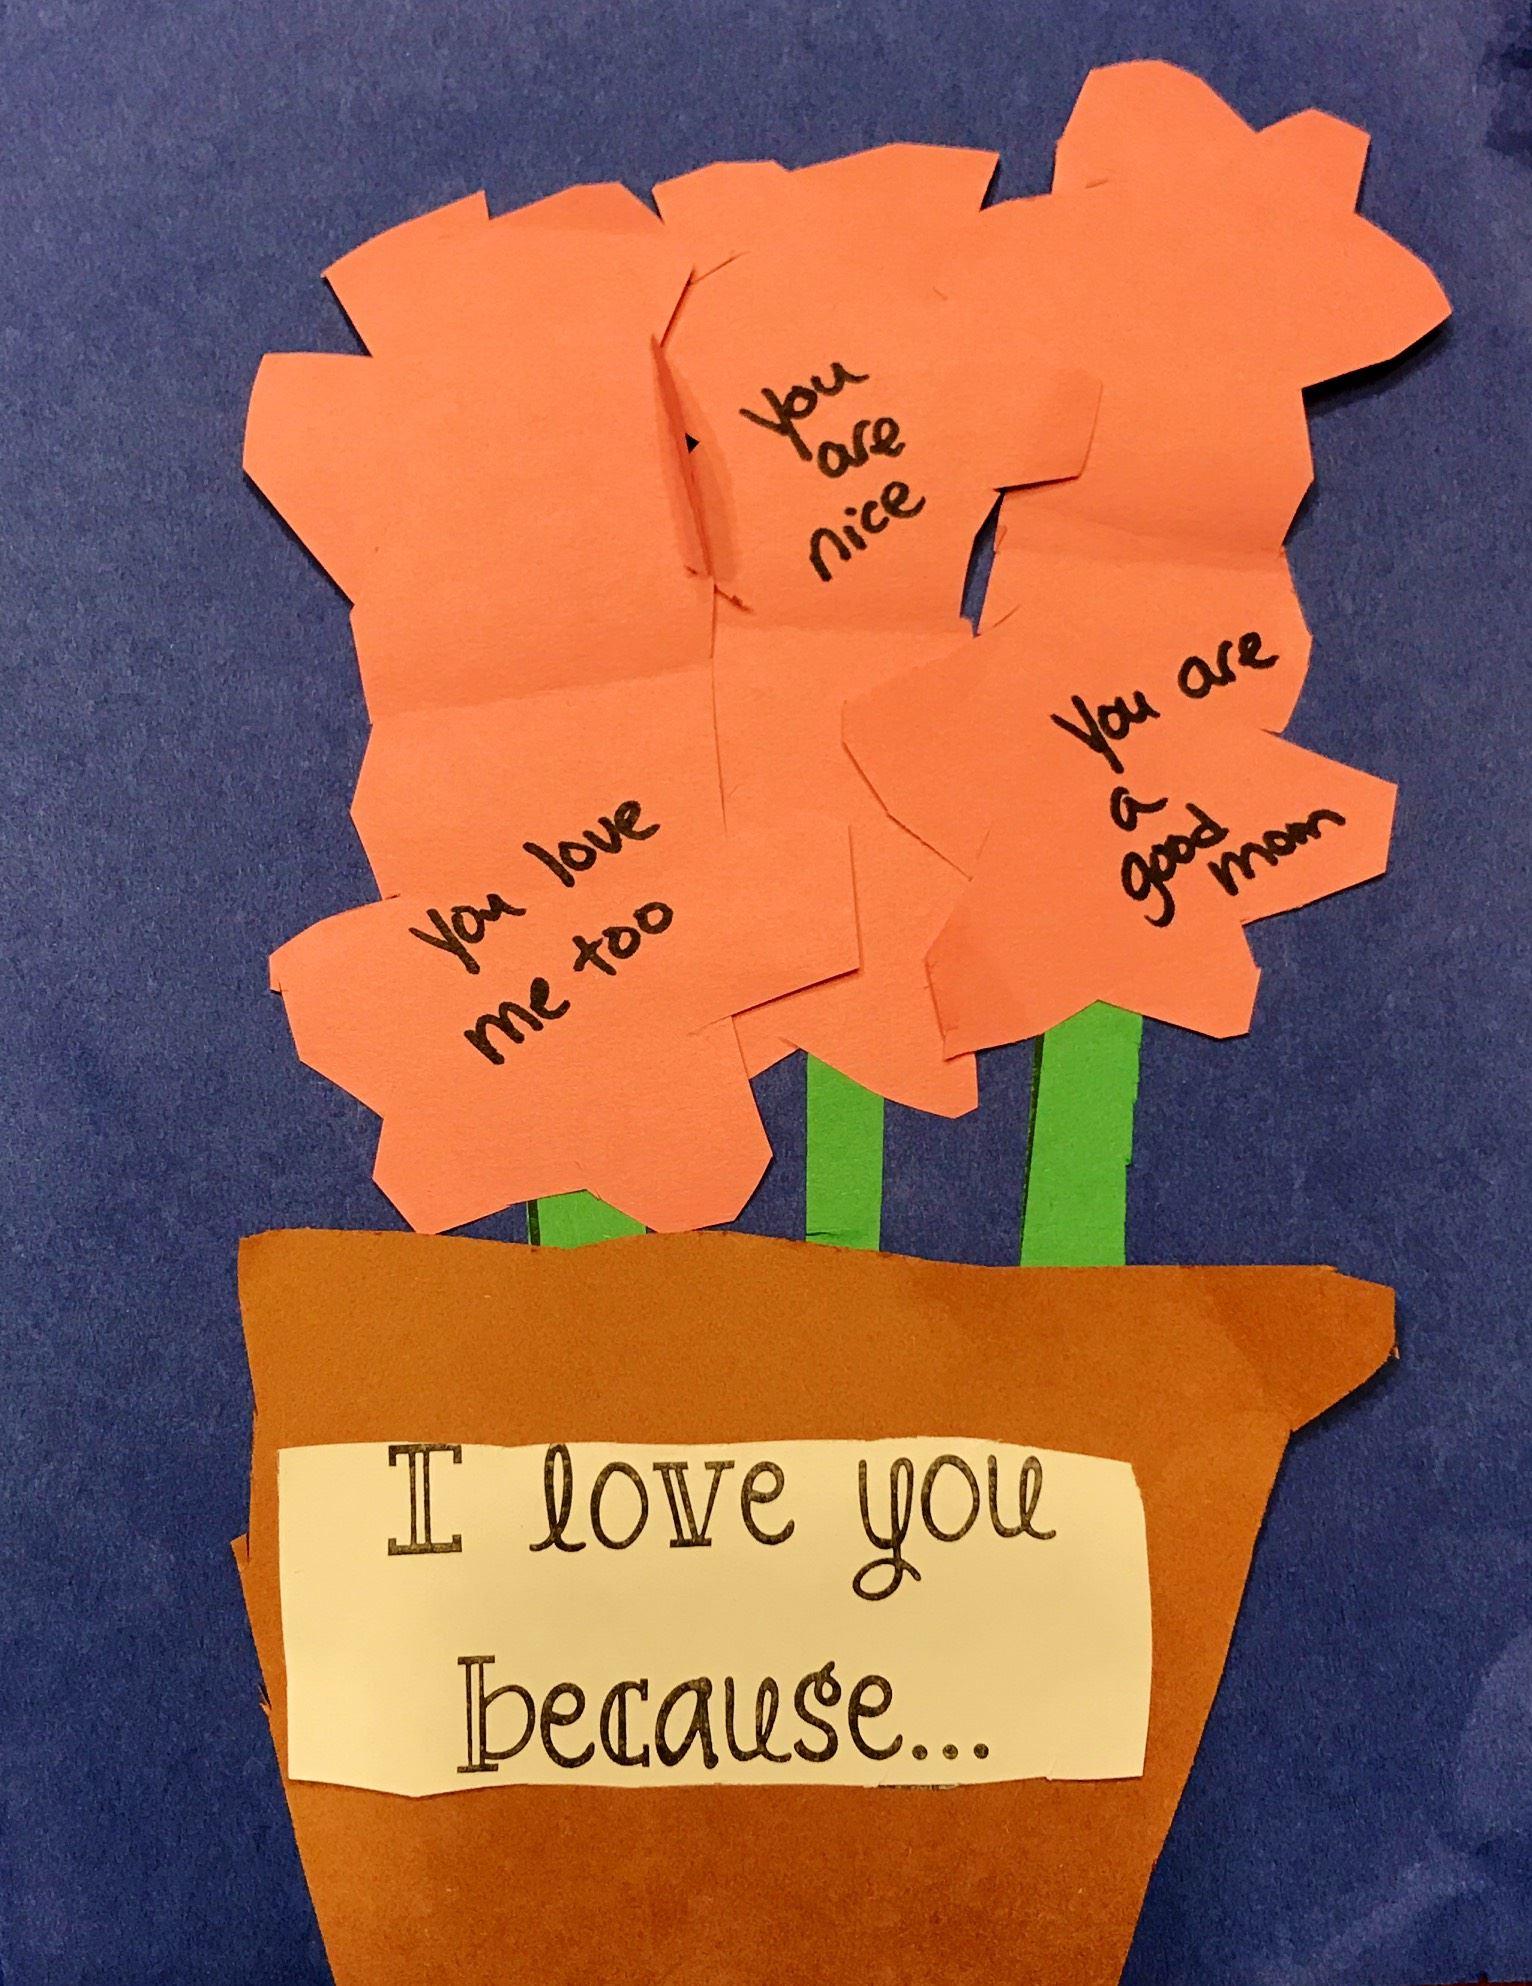 You
are
nice
You are
a
good
mom
You love
me too
I love you
because...